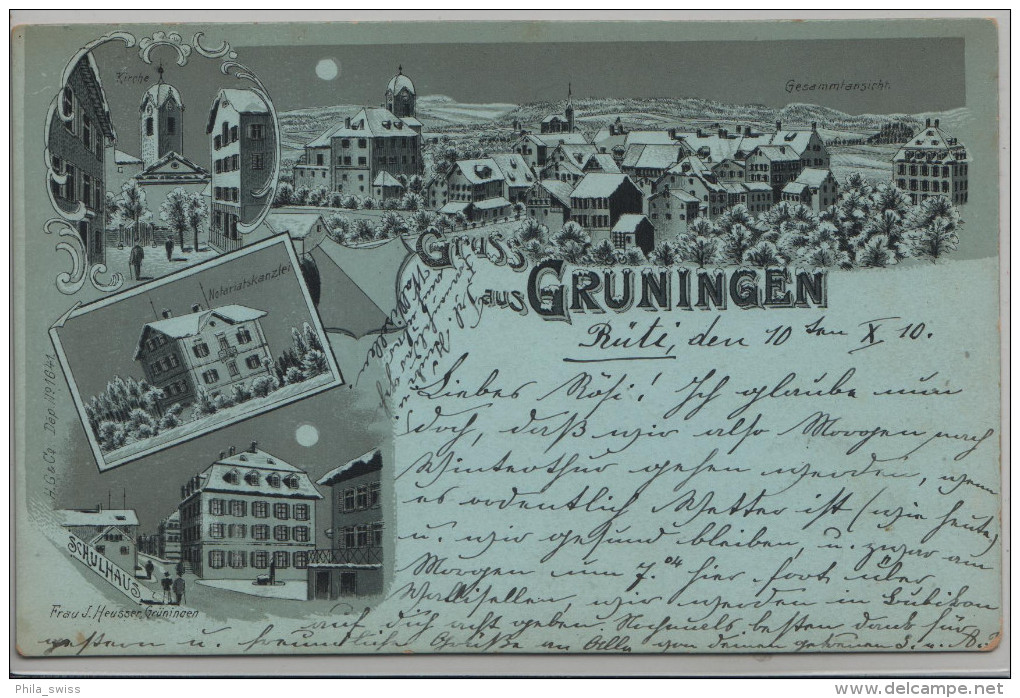 Kirche
Gesammtansicht.
Notariatskanzlei
Gruss
aus GRÜNINGEN
Rüti, den 10ten X 10.
Liebes Rösi! Ich glaube nun
doch, daß wir also Morgen nach
Winterthur gehen werden, wenn
es ordentlich Wetter ist (wie heute)
u. wir gesund bleiben, u. zwar am
Morgen um 7.04 hier fort über
Wallisellen, wir werden in Bubikon
auf Dich acht geben Nochmals besten Dank für
gestern u. freundliche Grüße an Alle von deinen getreuen
H.G & Co. Dep. No 1641.
SCHULHAUS
Frau J. Heusser, Grüningen
Phila_swiss
www.delcampe.net